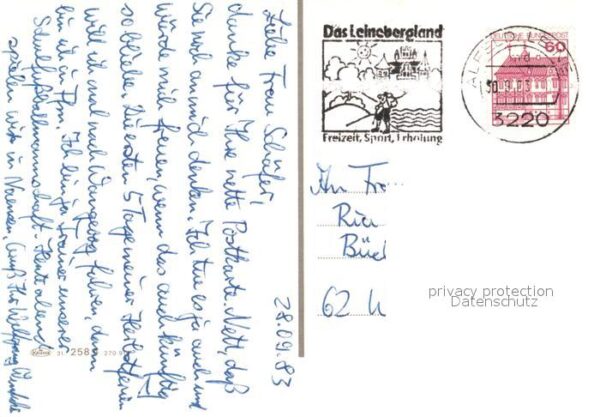 28.09.83
Liebe Frau Schäfer,
danke für Ihre nette Postkarte. Nett, daß
Sie noch an mich denken. Ich tue es ja auch und
würde mich freuen, wenn das auch künftig
so bliebe. Die ersten 5 Tage meiner Herbstferien
will ich mal nach Wangeroog fahren, dann
bin ich in Ihm. Ich bin ja Trainer unserer
Schulfußballmannschaft. Heute abend
spielen wir in Gruß Ihr Wolfgang
Krüger 31. 258
Das Leinebergland
Freizeit, Sport, Erholung
DEUTSCHE BUNDESPOST
60
30.9.83
3220
An Fr
62
privacy protection
Datenschutz